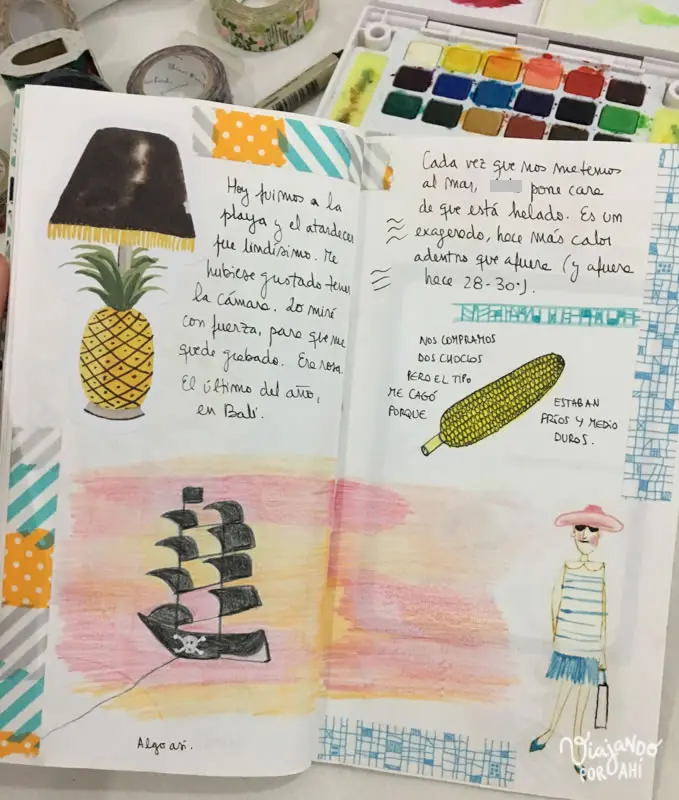 Hoy fuimos a la
playa y el atardecer
fue lindísimo. Me
hubiese gustado tener
la cámara. Lo miré
con fuerza, para que me
quede grabado. Era rosa.
El último del año,
en Bali.
Algo así.
Cada vez que nos metemos
al mar, pone cara
de que está helado. Es un
exagerado, hace más calor
adentro que afuera (y afuera
hace 28-30°).
NOS COMPRAMOS
DOS CHOCLOS
PERO EL TIPO
ME CAGÓ
PORQUE
ESTABAN
FRÍOS Y MEDIO
DUROS.
Viajando
POR AHÍ